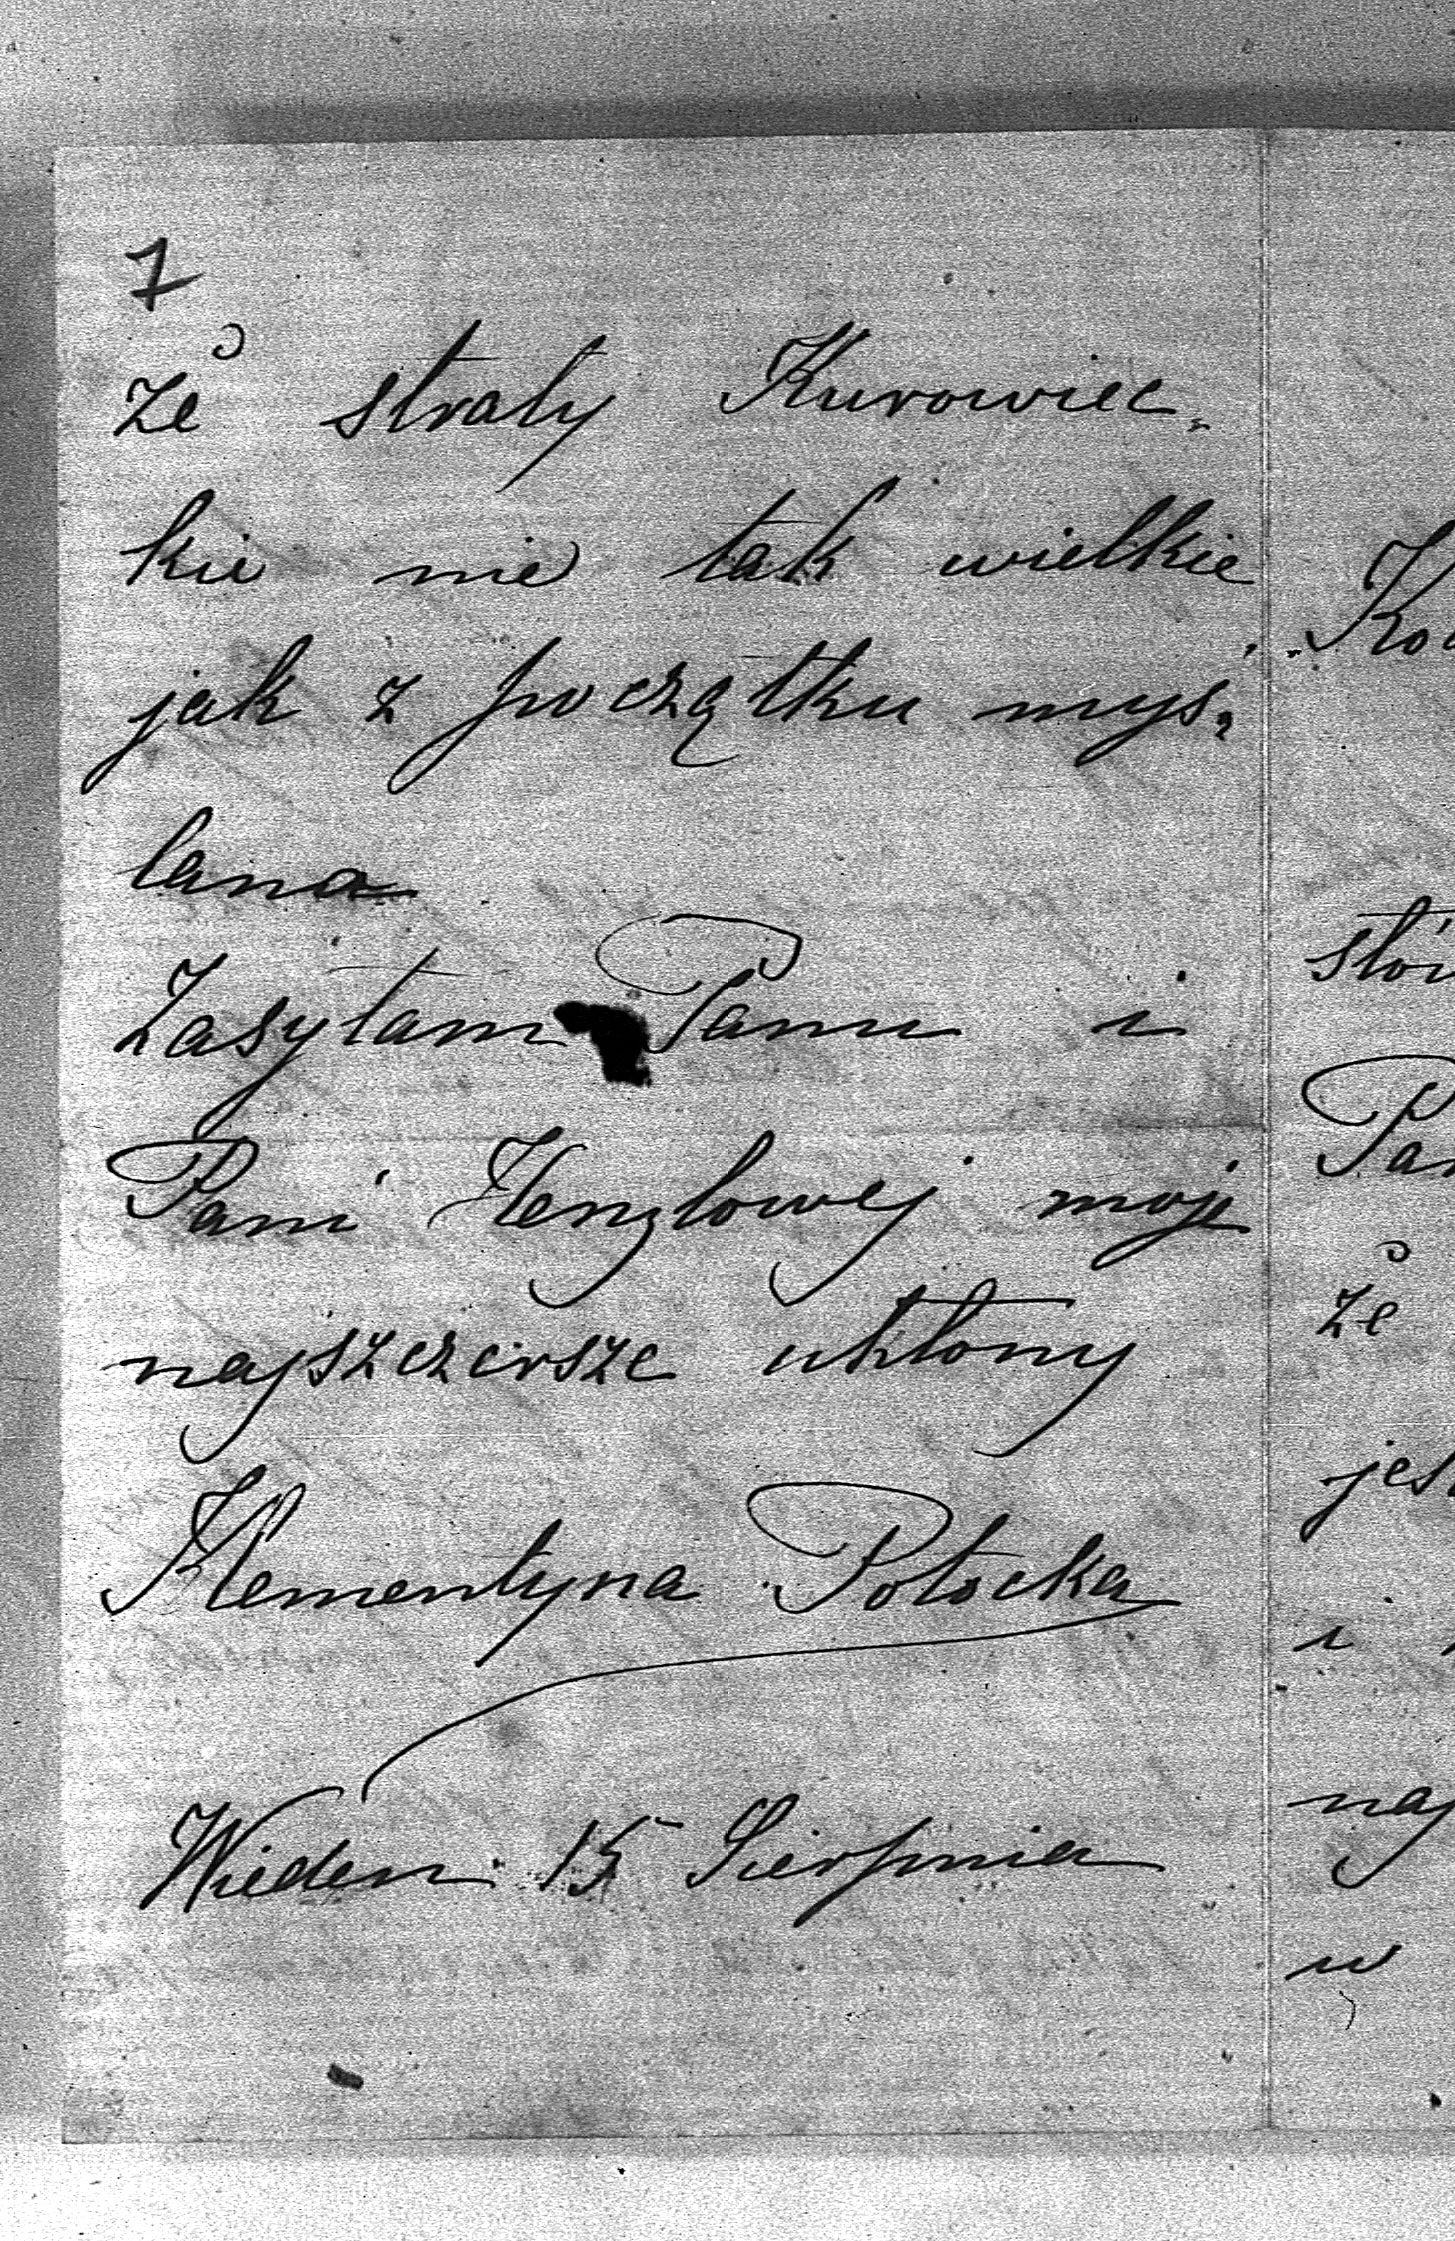 7
że straty Kurowiec,
kie nie tak wielkie
jak z początku myś,
lana
Zasyłam Panu i
Pani moje
najszczersze ukłony
Klementyna Potocka
Wieden 15 Sierpnia
że
i
w